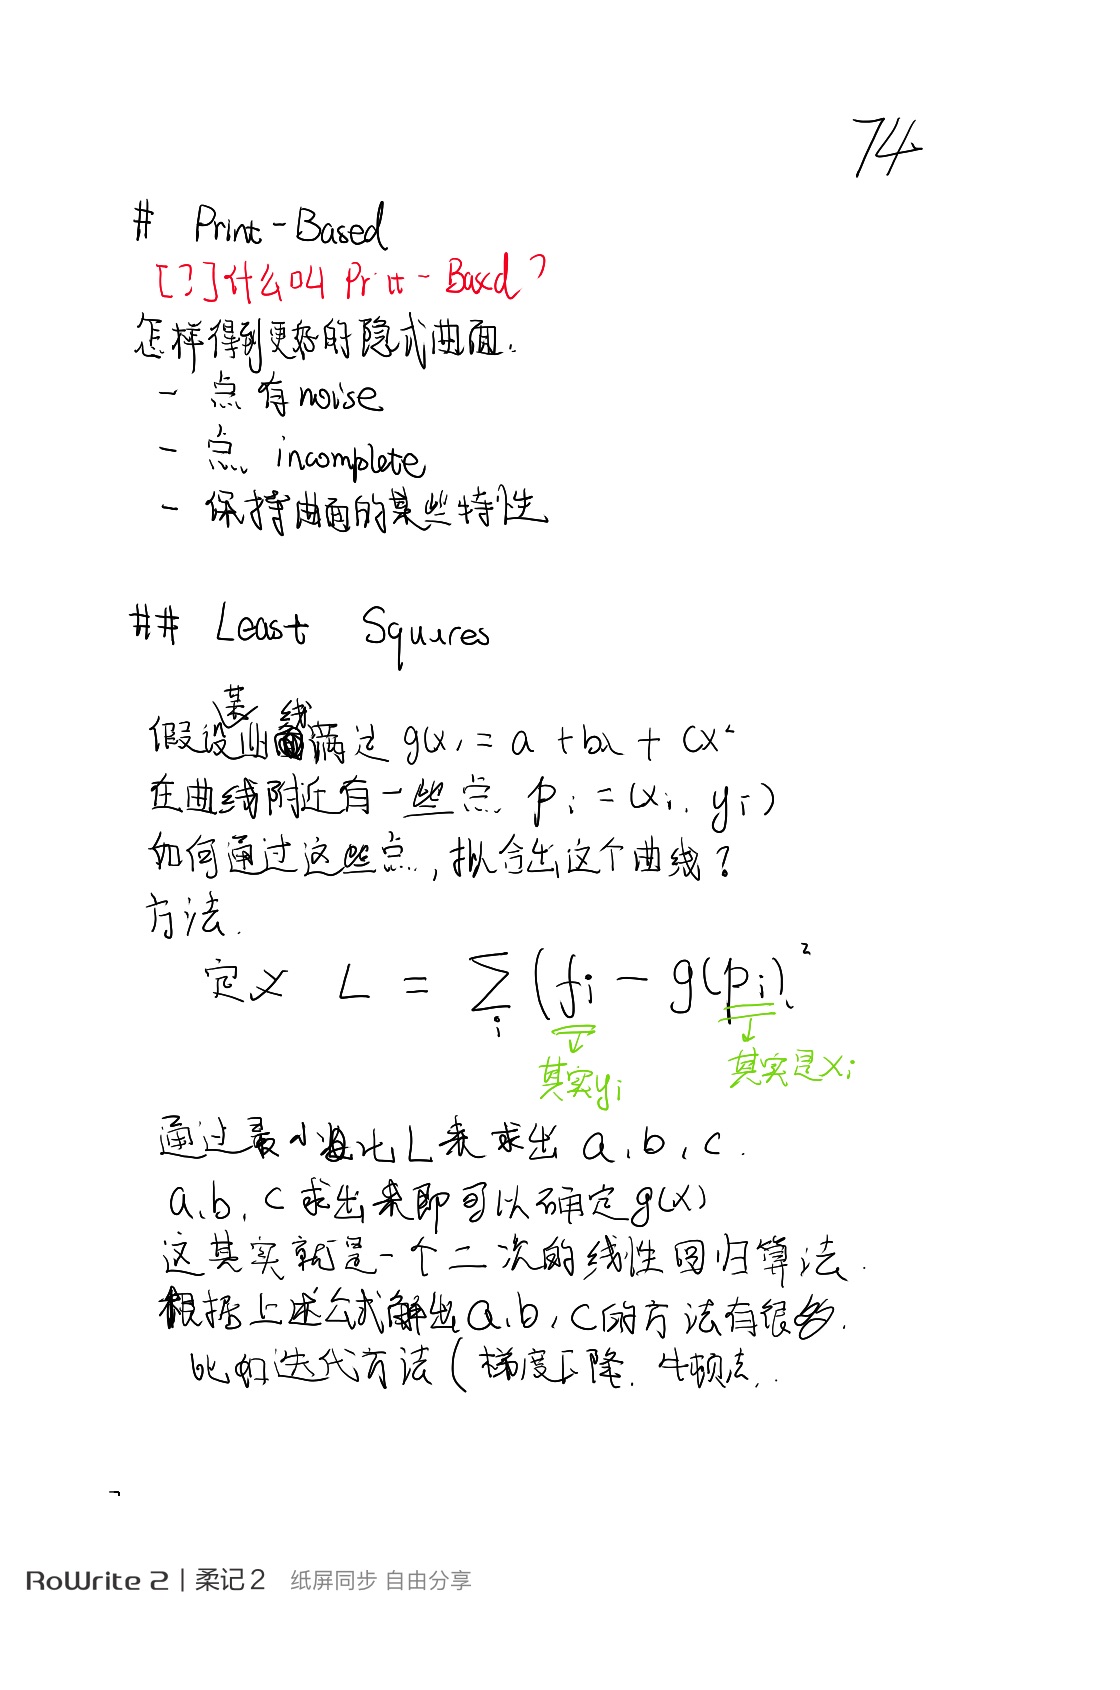 74
# Print-Based
[?]什么叫 Print-Based?
怎样得到更好的隐式曲面.
- 点有noise
- 点 incomplete
- 保持曲面的某些特性
## Least Squares
假设某曲线满足 g(x) = a + bx + cx²
在曲线附近有一些点 pi = (xi, yi)
如何通过这些点,拟合出这个曲线?
方法.
定义 L = ∑i (fi - g(pi))²
其实yi 其实是xi
通过最小化 L 来求出 a, b, c.
a, b, c 求出来即可以确定g(x)
这其实就是一个二次的线性回归算法.
根据上述公式解出a, b, c的方法有很多.
比如迭代方法(梯度下降, 牛顿法,.
RoWrite 2 | 柔记2 纸屏同步 自由分享